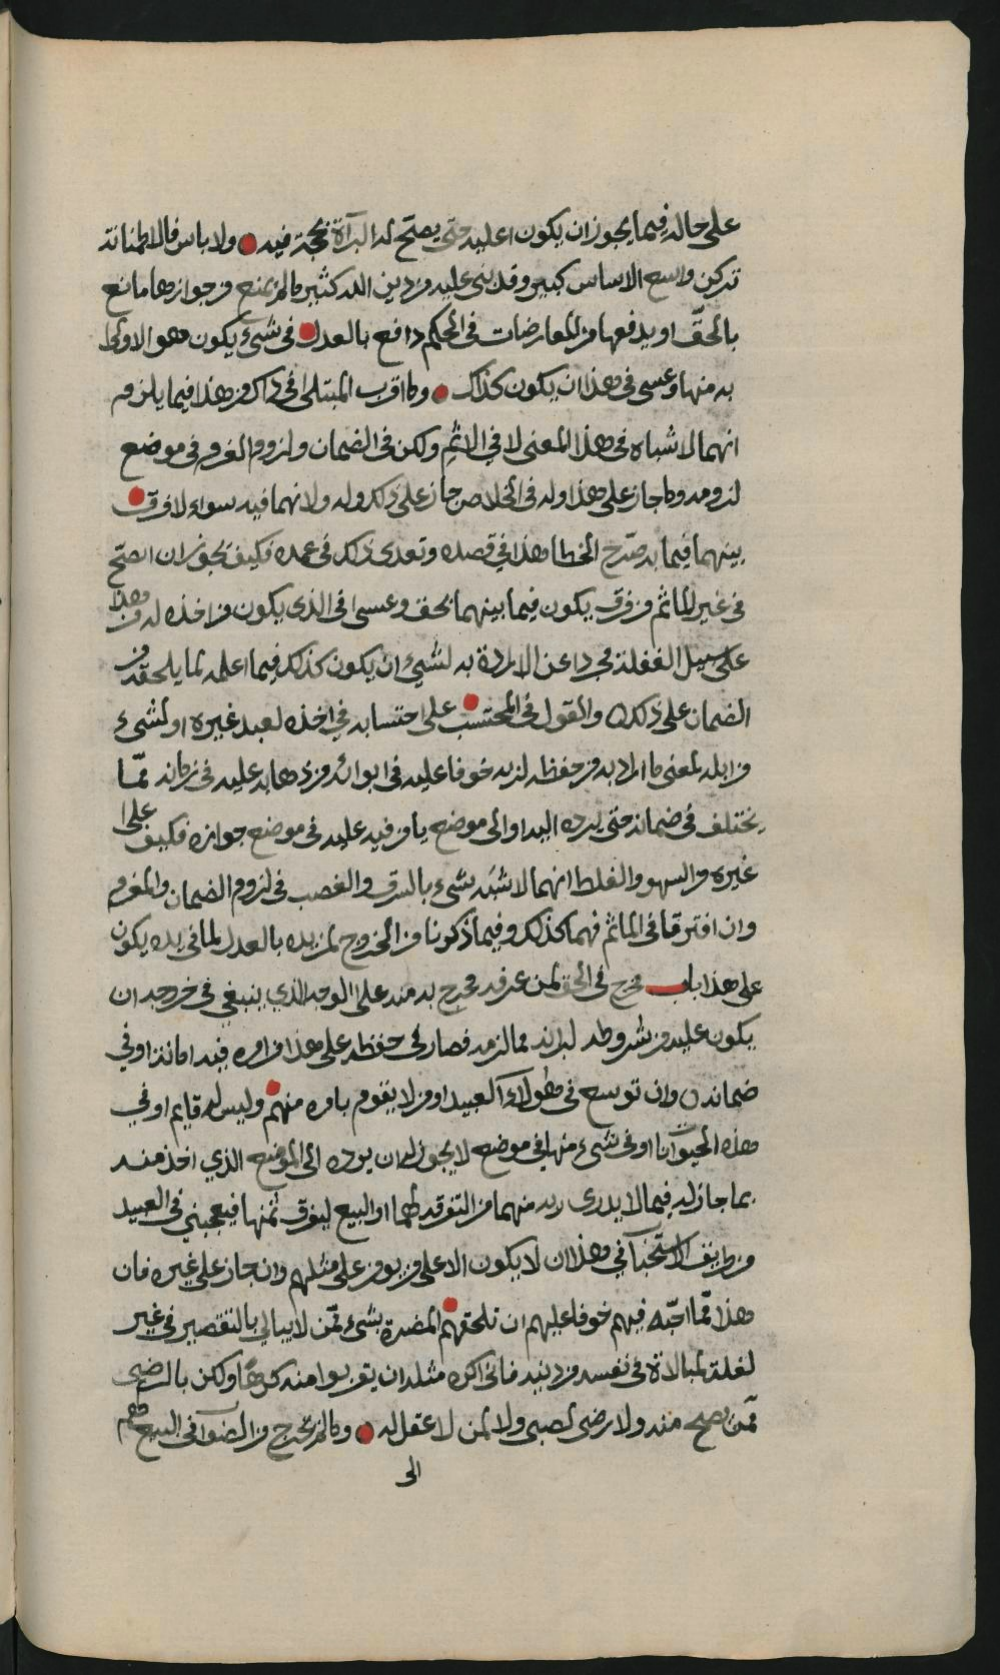 على حاله فيما يجوز ان يكون اعليه حتى يصح له البرآة بحجة فيه ولا باس فالاطمئانة
تدكن واسع الاساس كبير وقد بني عليه من دين الله كثير ما لم يمنع من جوازها مانع
بالحق او يدفعها من المعارضات في الحكم دافع بالعدل في شيء يكون هو الاولى
به منها وعسى في هذا ان يكون كذلك وما اقرب المبتلى في ذاك من هذا فيما يلزمه
انهما لاشباه في هذا المعنى لا في الاثم ولكن في الضمان ولزوم الغرم في موضع
لزومه وما جاز على هذا وله في الخلاص جاز على ذلك وله ولانهما فيه سواء لا فرق
بينهما فيما به صرح الخطا هذا في قصده وتعدى ذلك في عمده فكيف يجوز ان اصح
في غير الماثم من فرق يكون فيما بينهما بحق وعسى في الذي يكون من اخذه له من هذا
على سبيل الغفلة مجردا عن الارادة به لشيء ان يكون كذلك فيما اعلمه لما يلحقه من
الضمان على ذلك والقول في المحتسب على احتسابه في اخذه لعبد غيره او لشيء
من ابله لمعنى ما اراد به من حفظه لربه خوفا عليه في ابوائه من ذهابه عليه في زمانه مما
يختلف في ضمانه حتى يرده اليه او الى موضع يامن فيه عليه في موضع جوازه فكيف على
غيره والسهو والغلط انهما لاشبه بشيء بالسرق والغصب في لزوم الضمان والمغرم
وان افترقا في الماثم فهما كذلك وفيما ذكرنا من الخروج لمن يده بالعدل لما في يده يكون
على هذا باب مخرج في الحق لمن عرفه مخرج به منه على الوجه الذي ينبغي في خرجه ان
يكون عليه من شروطه لبرانه مما لزمه فصار في حفظه على هذا من امره فيه امانة او في
ضمانه وان توسع في هؤلاء العبيد او من لا يقوم بامره منهم وليس له قايم او في
هذه الحيوانات او في شيء منها في موضع لا يجوز له ان يرده الى الموضع الذي اخذ منه
بما جاز له فيما لا يدرى ربه منهما من التفرقه لهما او البيع ليفرق ثمنها فيعجبني في العبيد
من طريق الاستحباب في هذا ان لا يكون الا على من يومن على مثلهم وان جاز على غيره فان
هذا مما احبه فيهم خوفا عليهم ان تلحقهم المضرة بشيء ممن لا يبالي بالتقصير في غير
لغلة المبالاة في نفسه من دنيه فاني اكره مثله ان يقربوا منه كرها ولكن بالرضى
ممن يصح منه ولا رضى لصبي ولا لمن لا عقل له وما لم يخرج من الصواب في البيع لهم
الى